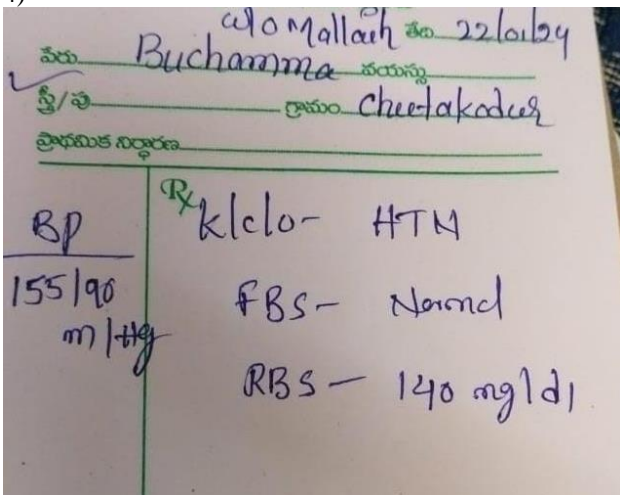 W/o Mallaih తేది 22/01/24
పేరు Buchamma వయస్సు
స్త్రీ/పు గ్రామం Cheetakodur
ప్రాథమిక నిర్ధారణ
BP
155/90
m/Hg
Rx K/c/o- HTN
FBS- Normal
RBS- 140 mg/dl